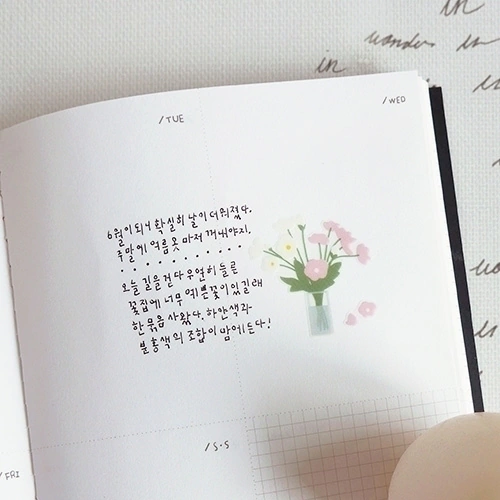 in
wonders in
in
/TUE
/WED
6월이 되니 확실히 날이 더워졌다.
주말에 여름옷 마저 꺼내야지.
오늘 길을 걷다 우연히 들른
꽃집에 너무 예쁜 꽃이 있길래
한 묶음 사왔다. 하얀색과
분홍색의 조합이 맘에 든다!
/FRI
/S·S